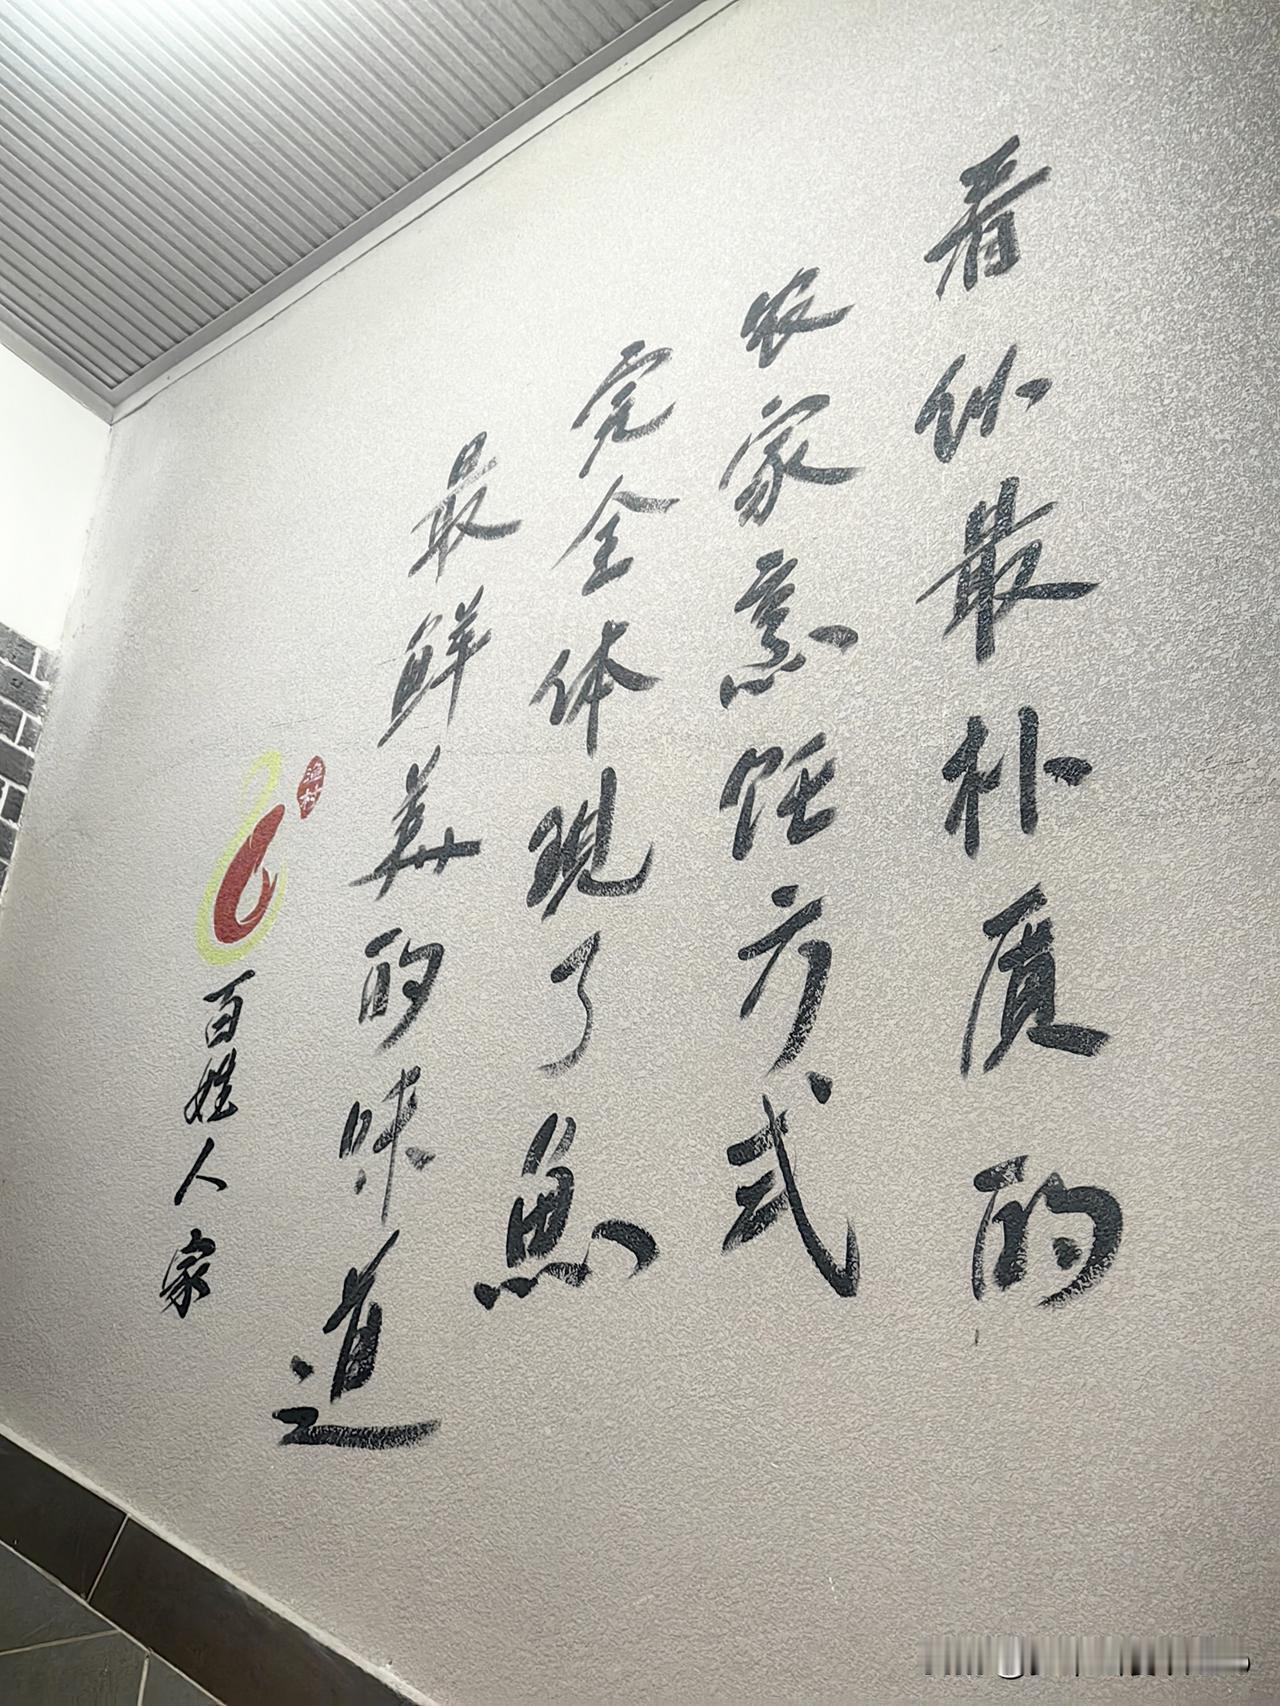 看似最朴质的
农家烹饪方式
完全体现了鱼
最鲜美的味道
渔村
百姓人家